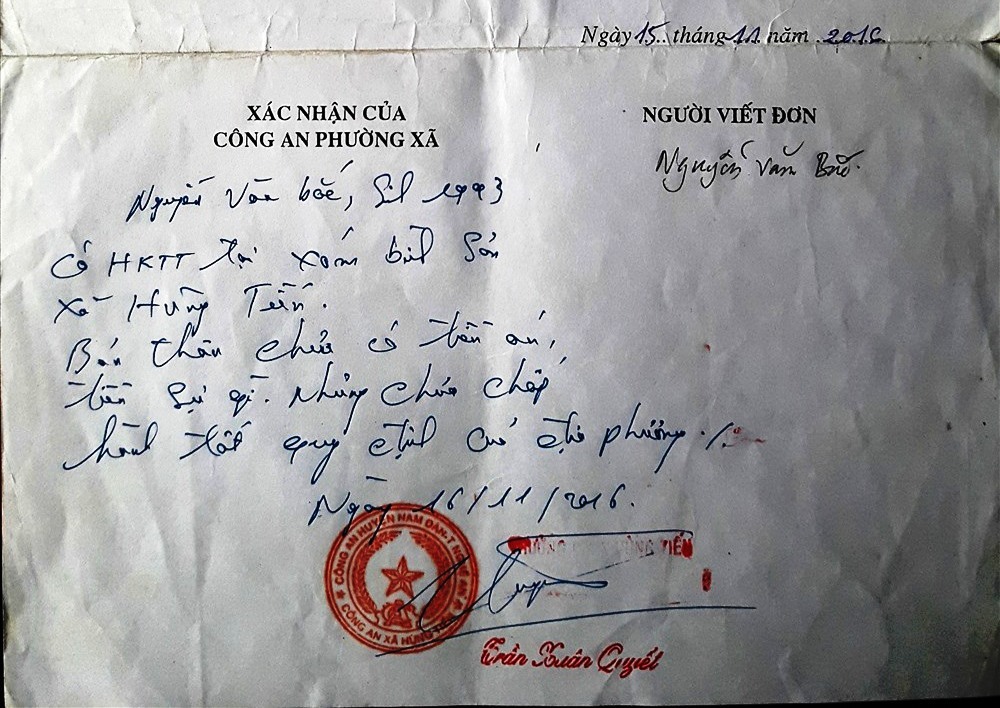 Ngày 15 tháng 11 năm 2016
XÁC NHẬN CỦA
CÔNG AN PHƯỜNG XÃ
NGƯỜI VIẾT ĐƠN
Nguyễn Văn Bắc
Nguyễn Văn bắc, Sinh 1993
Có HKTT tại xóm bình Sơn
Xã Hưng Tiến.
Bản thân chưa có tiền án,
tiền sự gì. Nhưng chưa chấp
hành tốt quy định của địa phương ./.
Ngày 16/11/2016.
CÔNG AN HUYỆN NAM ĐÀN T NGHỆ AN
CÔNG AN XÃ HƯNG TIẾN
Trần Xuân Quyết